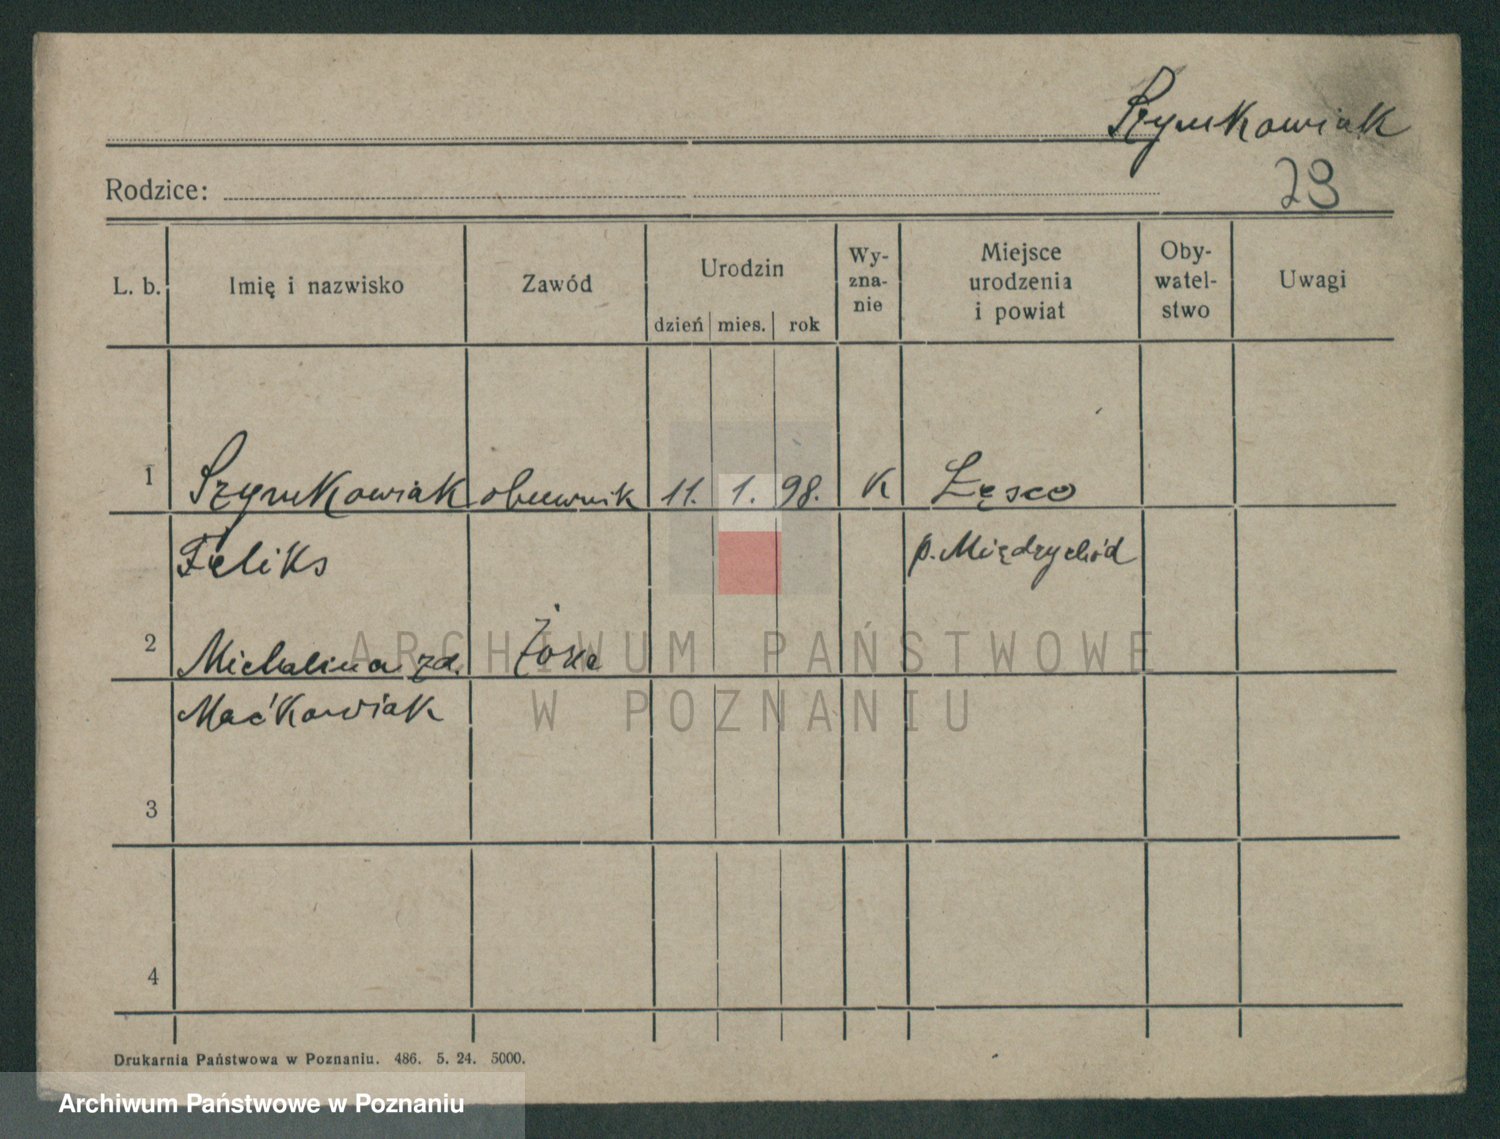 Szymkowiak
Rodzice:
23
L. b. Imię i nazwisko Zawód Urodzin dzień mies. rok Wy-zna-nie Miejsce urodzenia i powiat Oby-watel-stwo Uwagi
1 Szymkowiak obuwnik 11. 1. 98. K Łęsco
Feliks p. Międzychód
2 Michalina zd. Żona
Maćkowiak
3
4
Drukarnia Państwowa w Poznaniu. 486. 5. 24. 5000.
ARCHIWUM PAŃSTWOWE
W POZNANIU
Archiwum Państwowe w Poznaniu